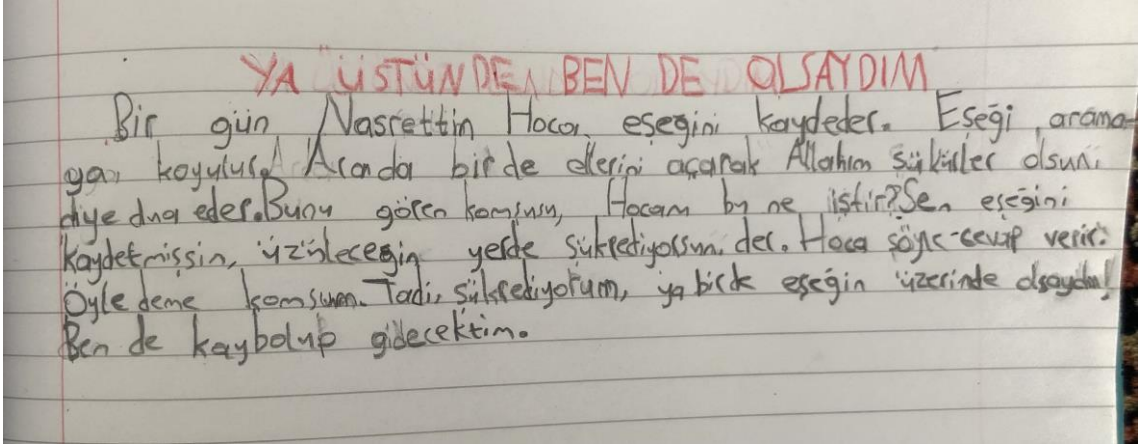 YA ÜSTÜNDE BEN DE OLSAYDIM
Bir gün Nasrettin Hoca eşeğini kaydeder. Eşeği arama-
ya koyulur. Arada bir de ellerini açarak Allahım şükürler olsun
diye dua eder. Bunu gören komşusu, Hocam bu ne iştir? Sen eşeğini
kaydetmişsin, üzüleceğin yerde şükrediyorsun. der. Hoca şöyle cevap verir:
Öyle deme komşum. Tabi, şükrediyorum, ya birde eşeğin üzerinde olsaydım!
Ben de kaybolup gidecektim.